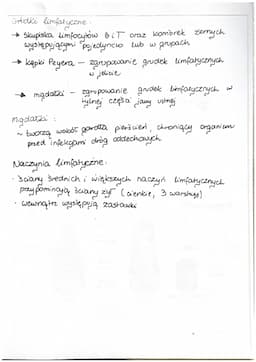 Grudki limfatyczne:
→ skupiska limfocytów B i T oraz komórek żernych
występującymi pojedynczo lub w grupach
→ kępki Peyera – zgrupowanie grudek limfatycznych
w jelicie
→ migdałki – zgrupowanie grudek limfatycznych w
tylnej części jamy ustnej
Migdałki:
~ tworzą wokół gardła pierścień, chroniący organizm
przed infekcjami dróg oddechowych
Naczynia limfatyczne:
· ściany średnich i większych naczyń limfatycznych
przypominają ściany żył (cienkie, 3 warstwy)
· wewnątrz występują zastawki